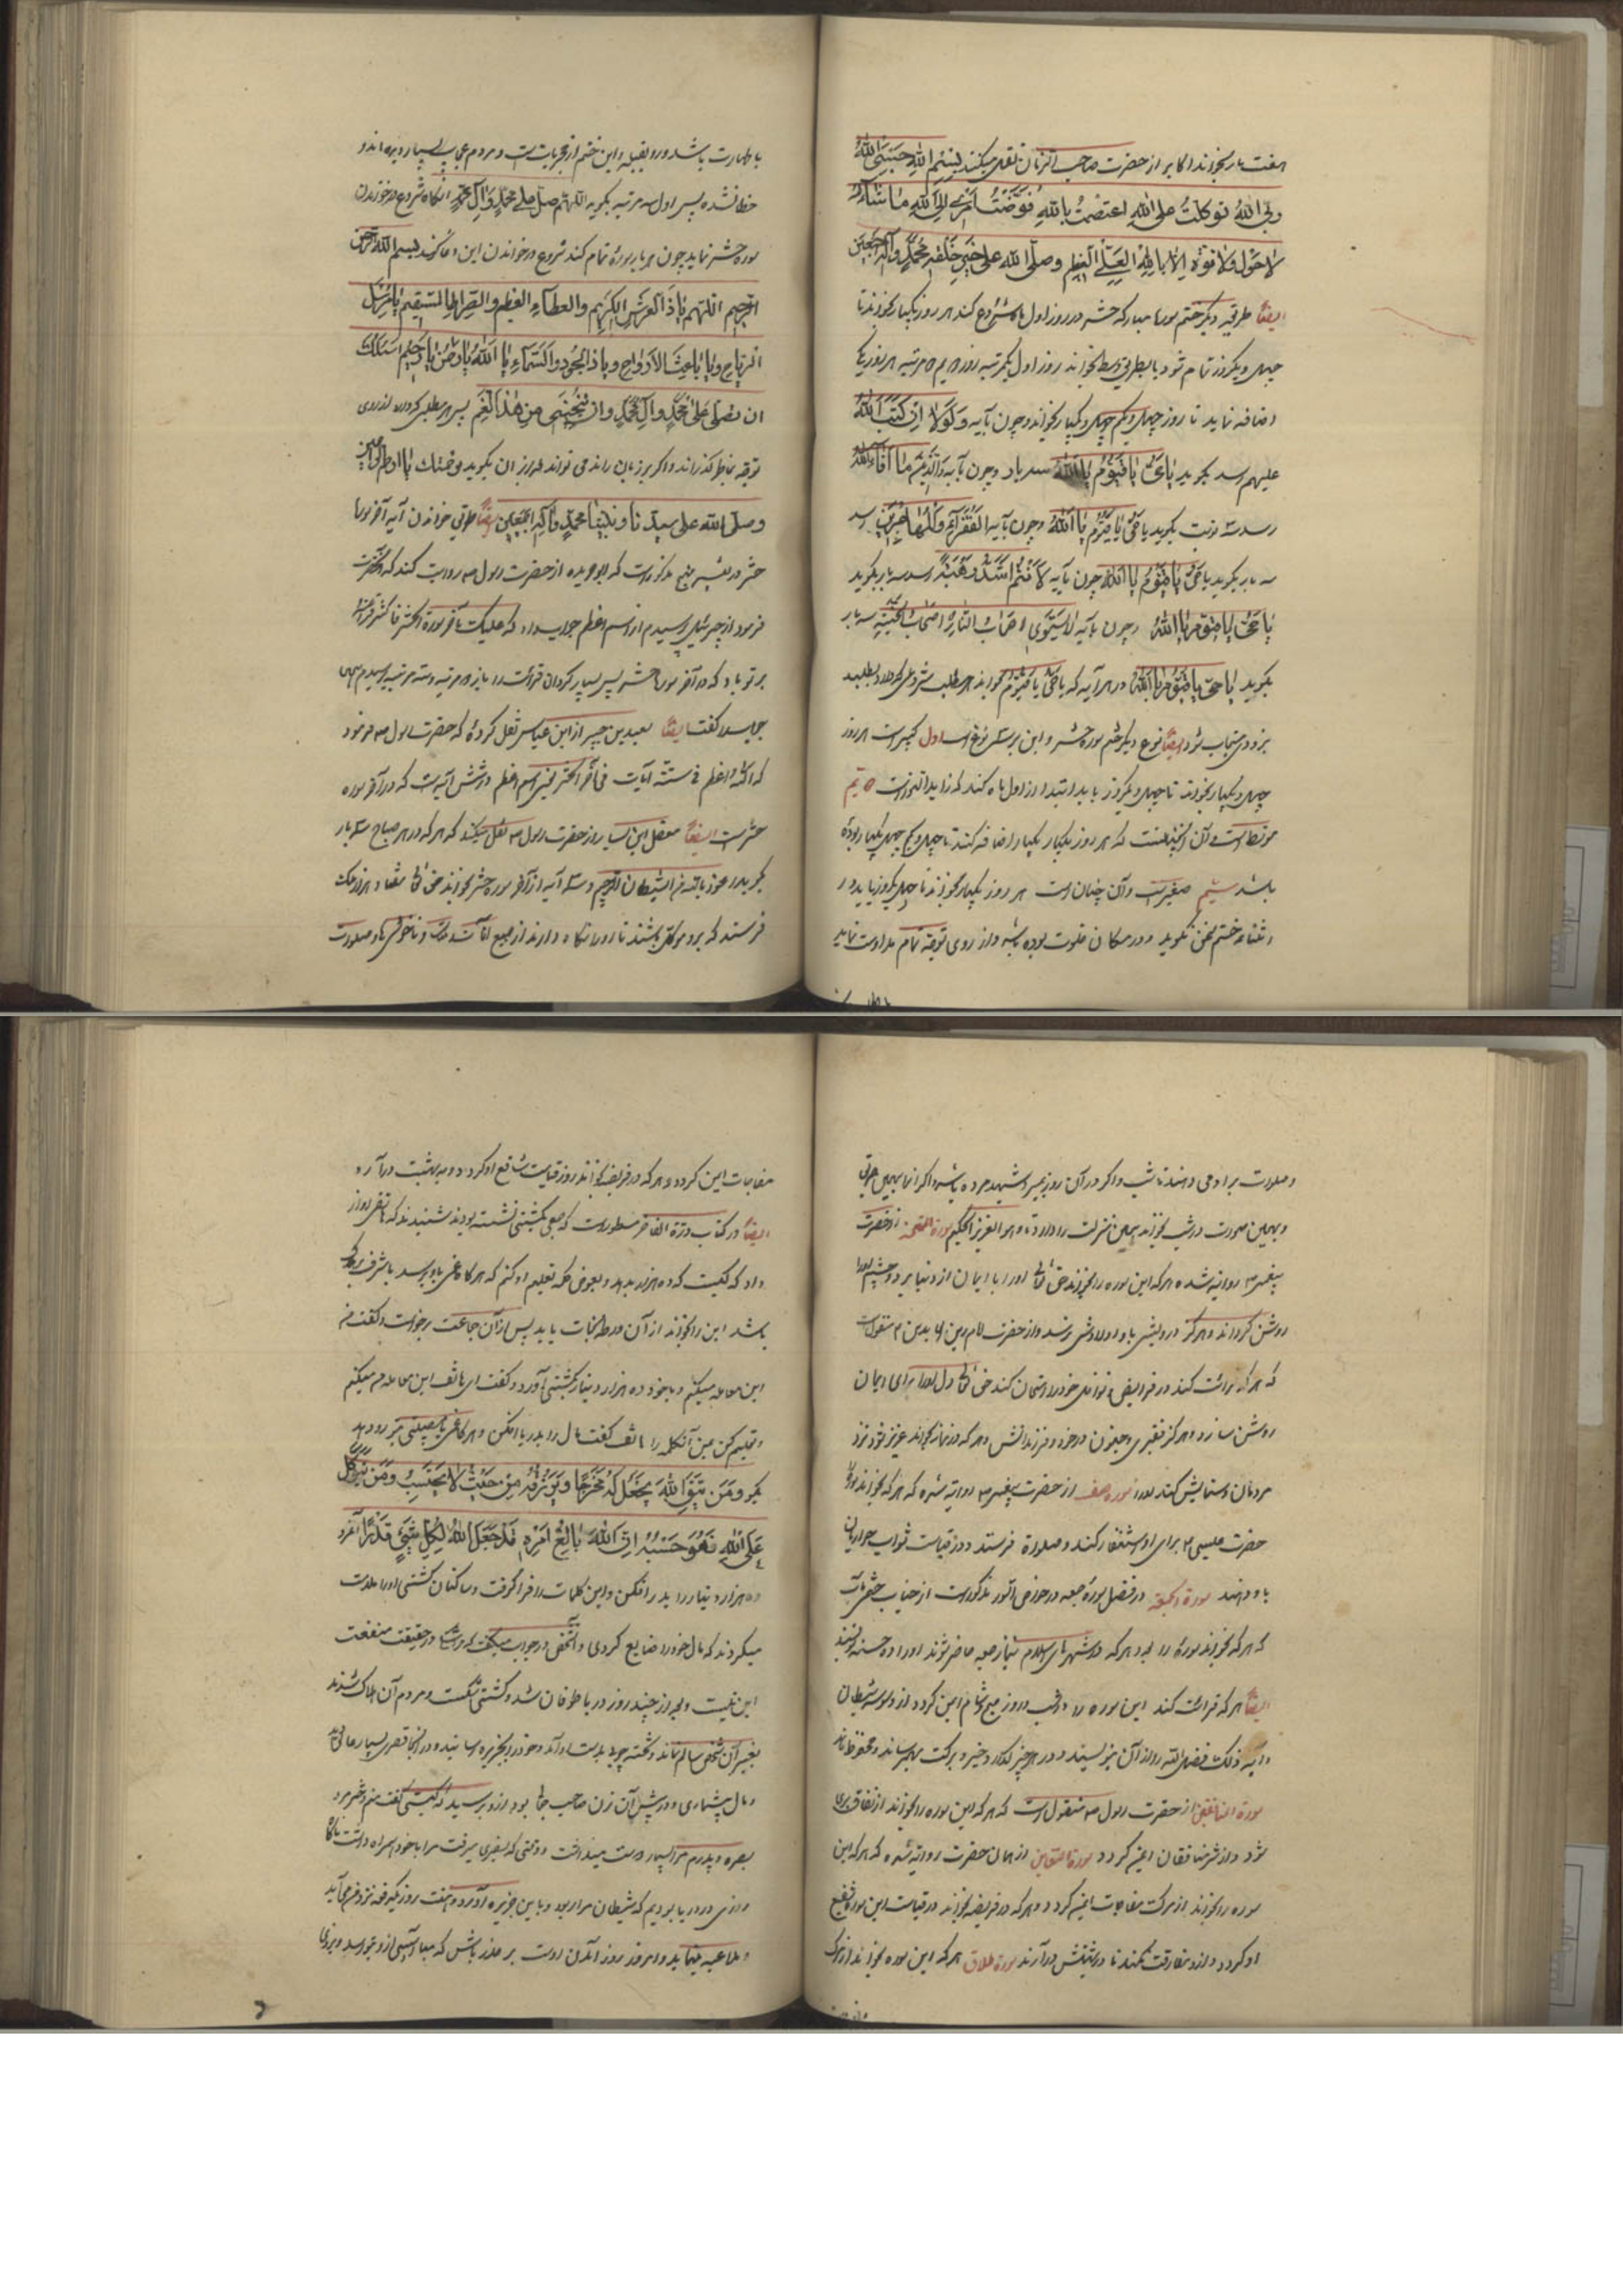 هفت بار بخواند اکابر از حضرت صاحب الزمان نقل میکنند بِسْمِ اللهِ حَسْبِیَ اللهُ
تَوَکَّلْتُ عَلَی اللهِ اعْتَصَمْتُ بِاللهِ فَوَّضْتُ اَمْرِی اِلَی اللهِ مَا شَاءَ اللهُ
لَا حَوْلَ وَلَا قُوَّةَ اِلَّا بِاللهِ الْعَلِیِّ الْعَظِیمِ وَصَلَّی اللهُ عَلَی خَیْرِ خَلْقِهِ مُحَمَّدٍ وَآلِهِ اَجْمَعِینَ
ایضًا طریقه دیگر ختم سوره مبارکه حشر در روز اول ماه شروع کند هر روز یکبار بخواند تا
چهل و یکروز تمام شود یا بطریق بسط بخواند روز اول یکمرتبه روز دویم دو مرتبه هر روز یک
اضافه نماید تا روز چهل و یکم چهل و یکبار بخواند و چون بآیه وَلَوْلَا اَنْ کَتَبَ اللهُ
علیهم رسد بگوید یَا حَیُّ یَا قَیُّومُ یَا اَللهُ سه بار و چون بآیه مَا اَفَاءَ اللهُ
رسد سه نوبت بگوید یا حَیُّ یا قَیُّومُ یَا اَللهُ و چون بآیه لِلْفُقَرَاءِ الْمُهَاجِرِینَ رسد
سه بار بگوید یا حَیُّ یَا قَیُّومُ یَا اَللهُ چون بآیه لَاَنْتُمْ اَشَدُّ رَهْبَةً رسد سه بار بگوید
یَا حَیُّ یَا قَیُّومُ یَا اَللهُ و چون بآیه لَا یَسْتَوِی اَصْحَابُ النَّارِ وَ اَصْحَابُ الْجَنَّةِ سه بار
بگوید یَا حَیُّ یَا قَیُّومُ یَا اَللهُ و در هر آیه که یا حَیُّ یا قَیُّومُ بخواند هر مطلب شرعی که دارد بطلبد
بزودی مستجاب شود ایضًا نوع دیگر ختم سوره حشر و این بر سه نوع است اول کبیر است هر روز
چهل و یکبار بخواند تا چهل و یکروز باید ابتدا از اول ماه کند که زاید النور است دویم
متوسط است و آن اینچنین است که هر روز یکبار یکبار اضافه کند تا چهل و یکم چهل یکبار بوده
باشد سیم صغیر است و آن چنان است هر روز یکبار بخواند تا چهل یکروز باید در
اثنای ختم سخن نگوید و در مکان خلوت بوده باشد و از روی توجه تمام مداومت نماید
با طهارت باشد و رو بقبله و این ختم از مجربات است و مردم عجایب بسیار دیده اند و
خطا نشده پس اول سه مرتبه بگوید اللهم صل علی محمد و آل محمد آنگاه شروع در خواندن
سوره حشر نماید چون هر بار سوره تمام کند شروع در خواندن این دعا کند بسم الله الرحمن
الرحیم اللهم یَا ذَا الْعَرْشِ الْکَرِیمِ وَالْعَطَاءِ الْعَظِیمِ وَالصِّرَاطِ الْمُسْتَقِیمِ یَا مُرْسِلَ
الرِّیَاحِ وَیَا بَاعِثَ الْاَرْوَاحِ وَیَا ذَا الْجُودِ وَالسَّخَاءِ یَا اَللهُ یَا رَحْمٰنُ یَا رَحِیمُ اَسْئَلُکَ
اَنْ تُصَلِّیَ عَلَی مُحَمَّدٍ وَآلِ مُحَمَّدٍ وَاَنْ تُنَجِّیَنِی مِنْ هٰذَا الْغَمِّ پس هر مطلبی که دارد از روی
توجه بخاطر گذراند و اگر بر زبان راند می تواند بعد از آن بگوید برحمتک یا ارحم الراحمین
وصلی الله علی سیدنا و نبینا محمد و آله اجمعین ایضًا طریق خواندن آیه آخر سوره
حشر در تفسیر منهج مذکور است که ابو هریره از حضرت رسول ص روایت کند که آنحضرت
فرمود از جبرئیل پرسیدم از اسم اعظم جواب داد که علیک بآخر سورة الحشر فاکثر قراءتها
بر تو باد که آخر سوره حشر پس بسیار گردان قرائت را باز دو مرتبه و سه مرتبه پرسیدم همین
جواب گفت ایضًا سعید بن جبیر از ابن عباس نقل کرده که حضرت رسول ص فرمود
که اسم الله الاعظم فی ستة آیات فی آخر الحشر یعنی اسم اعظم در شش آیت است که در آخر سوره
حشر است ایضًا معقل ابن یسار از حضرت رسول ص نقل میکند که هر که در هر صباح سه بار
بگوید اعوذ بالله من الشیطان الرجیم و سه آیه از آخر سوره حشر بخواند حق تعالی هفتاد هزار ملک
فرستد که برو موکل باشند تا او را نگاه دارند از جمیع آفات و ناخوشی ها و صلوات
و صلوات بر او می دهند تا شب و اگر در آن روز بمیرد شهید مرده باشد و اگر
و بهمین صورت در شب بخواند همین منزلت را دارد تا و هو العزیز الحکیم سورة الممتحنه از حضرت
پیغمبر ص روایت شده هر که این سوره را بخواند حق تعالی او را با ایمان از دنیا برد و چشم او را
روشن گرداند و هرگز درویشی باو و اولادش نرسد و از حضرت امام زین العابدین ع منقول است
که هر که قرائت کند در فرایض و نوافل خود را امتحان کند حق تعالی دل او را برای ایمان
روشن سازد و هرگز فقیری و جنون در خود و فرزندانش و هر که در نماز بخواند عزیز شود نزد
مردمان و ستایش کنند او را سوره صف از حضرت پیغمبر ص روایت شده که هر که بخواند سوره
حضرت عیسی ع برای او استغفار کند و صلوات فرستد و در قیامت ثواب حواریان
باو دهند سورة الجمعة در فضل سوره جمعه در خواص مذکور است از جناب ختمی مآب
که هر که بخواند سوره را و هر که در شهر های اسلام بنماز جمعه حاضر شوند او را ده حسنه نویسند
ایضًا هر که قرائت کند این سوره را در شب و روز صبح و شام ایمن گردد از وسوسه شیطان
و آیه ذلک فضل الله را از آن بنویسند و در هر چیز گذارد خیر و برکت بهم رساند و محفوظ ماند
سورة المنافقین از حضرت رسول ص منقول است که هر که این سوره را بخواند از نفاق بری
شود و از شر منافقان ایمن گردد سورة التغابن از همان حضرت روایت شده که هر که این
سوره را بخواند از مرگ مفاجات ایمن گردد و هر که در فریضه بخواند در قیامت این سوره شفیع
او گردد و از او مفارقت نکند تا در بهشتش درآرند سورة طلاق هر که این سوره بخواند از مرگ
مفاجات ایمن گردد و هر که در فریضه بخواند روز قیامت شافع او گردد و به بهشت درآرد
ایضًا در کتاب درة الفاخر مسطور است که جمعی بکشتی نشسته بودند شنیدند که هاتفی آواز
داد که کیست که ده هزار بدهد و بعوض کلمه تعلیم او کنم که هر گاه غمی باو برسد
باشد این را بخواند از آن ورطه نجات یابد پس از آن جماعت برخواست و گفت من
این معامله میکنم و با خود ده هزار دینار بکشتی آورد و گفت ای هاتف این معامله من میکنم
و تعلیم کن بمن آن کلمه را هاتف گفت مال را بدریا افکن و هر گاه غمی یا بتو رو دهد
بگو وَمَنْ یَتَّقِ اللهَ یَجْعَلْ لَهُ مَخْرَجًا وَیَرْزُقْهُ مِنْ حَیْثُ لَا یَحْتَسِبُ وَمَنْ یَتَوَکَّلْ
عَلَی اللهِ فَهُوَ حَسْبُهُ اِنَّ اللهَ بَالِغُ اَمْرِهِ قَدْ جَعَلَ اللهُ لِکُلِّ شَیْءٍ قَدْرًا
ده هزار دینار را بدریا افکن و این کلمات را فرا گرفت و ساکنان کشتی او را ملامت
میکردند که مال خود را ضایع کردی و آن شخص در جواب میگفت در حقیقت منفعت
این نیست و بعد از چند روز دریا طوفان شد و کشتی شکست و مردم آن هلاک شدند
بغیر آن شخص سالم ماند و تخته چوبی بدست او آمد و خود را بجزیره رسانید و در آنجا قصری بسیار عالی دید
و مال بیشماری و درپیش آن زن صاحب جمال بود از او پرسید که کیستی گفت من دختر مرد
بصره و پدرم مرا بسیار دوست میداشت و وقتی که بسفری میرفت مرا با خود همراه داشت
روزی در دریا بودیم که شیطان مرا ربود و باین جزیره آورد و هفت روز یکدفعه نزد من می آید
و ملاعبه مینماید و امروز روز آمدن اوست بر حذر باش که مبادا آسیبی از او بتو رسد